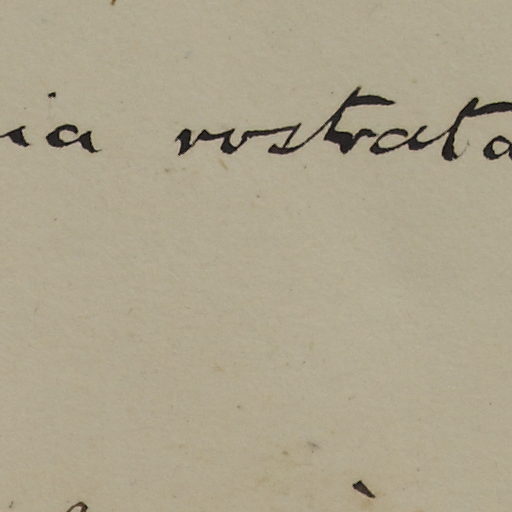 ia rostrata